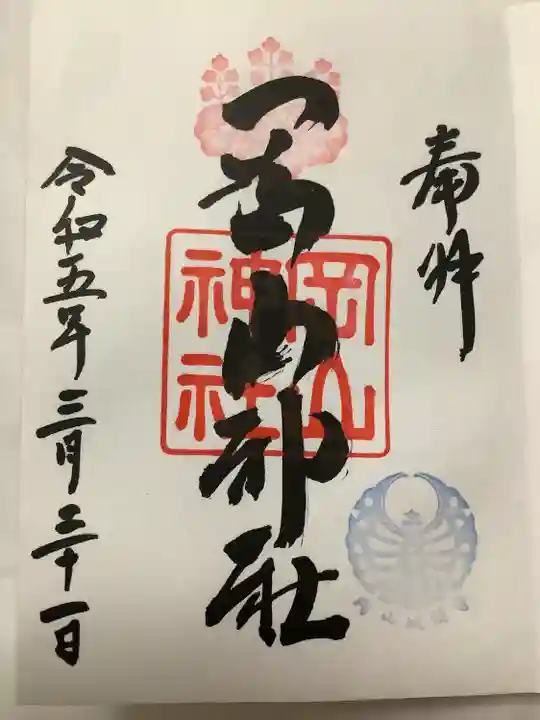 奉拝
岡山神社
岡山神社
令和五年三月三十一日